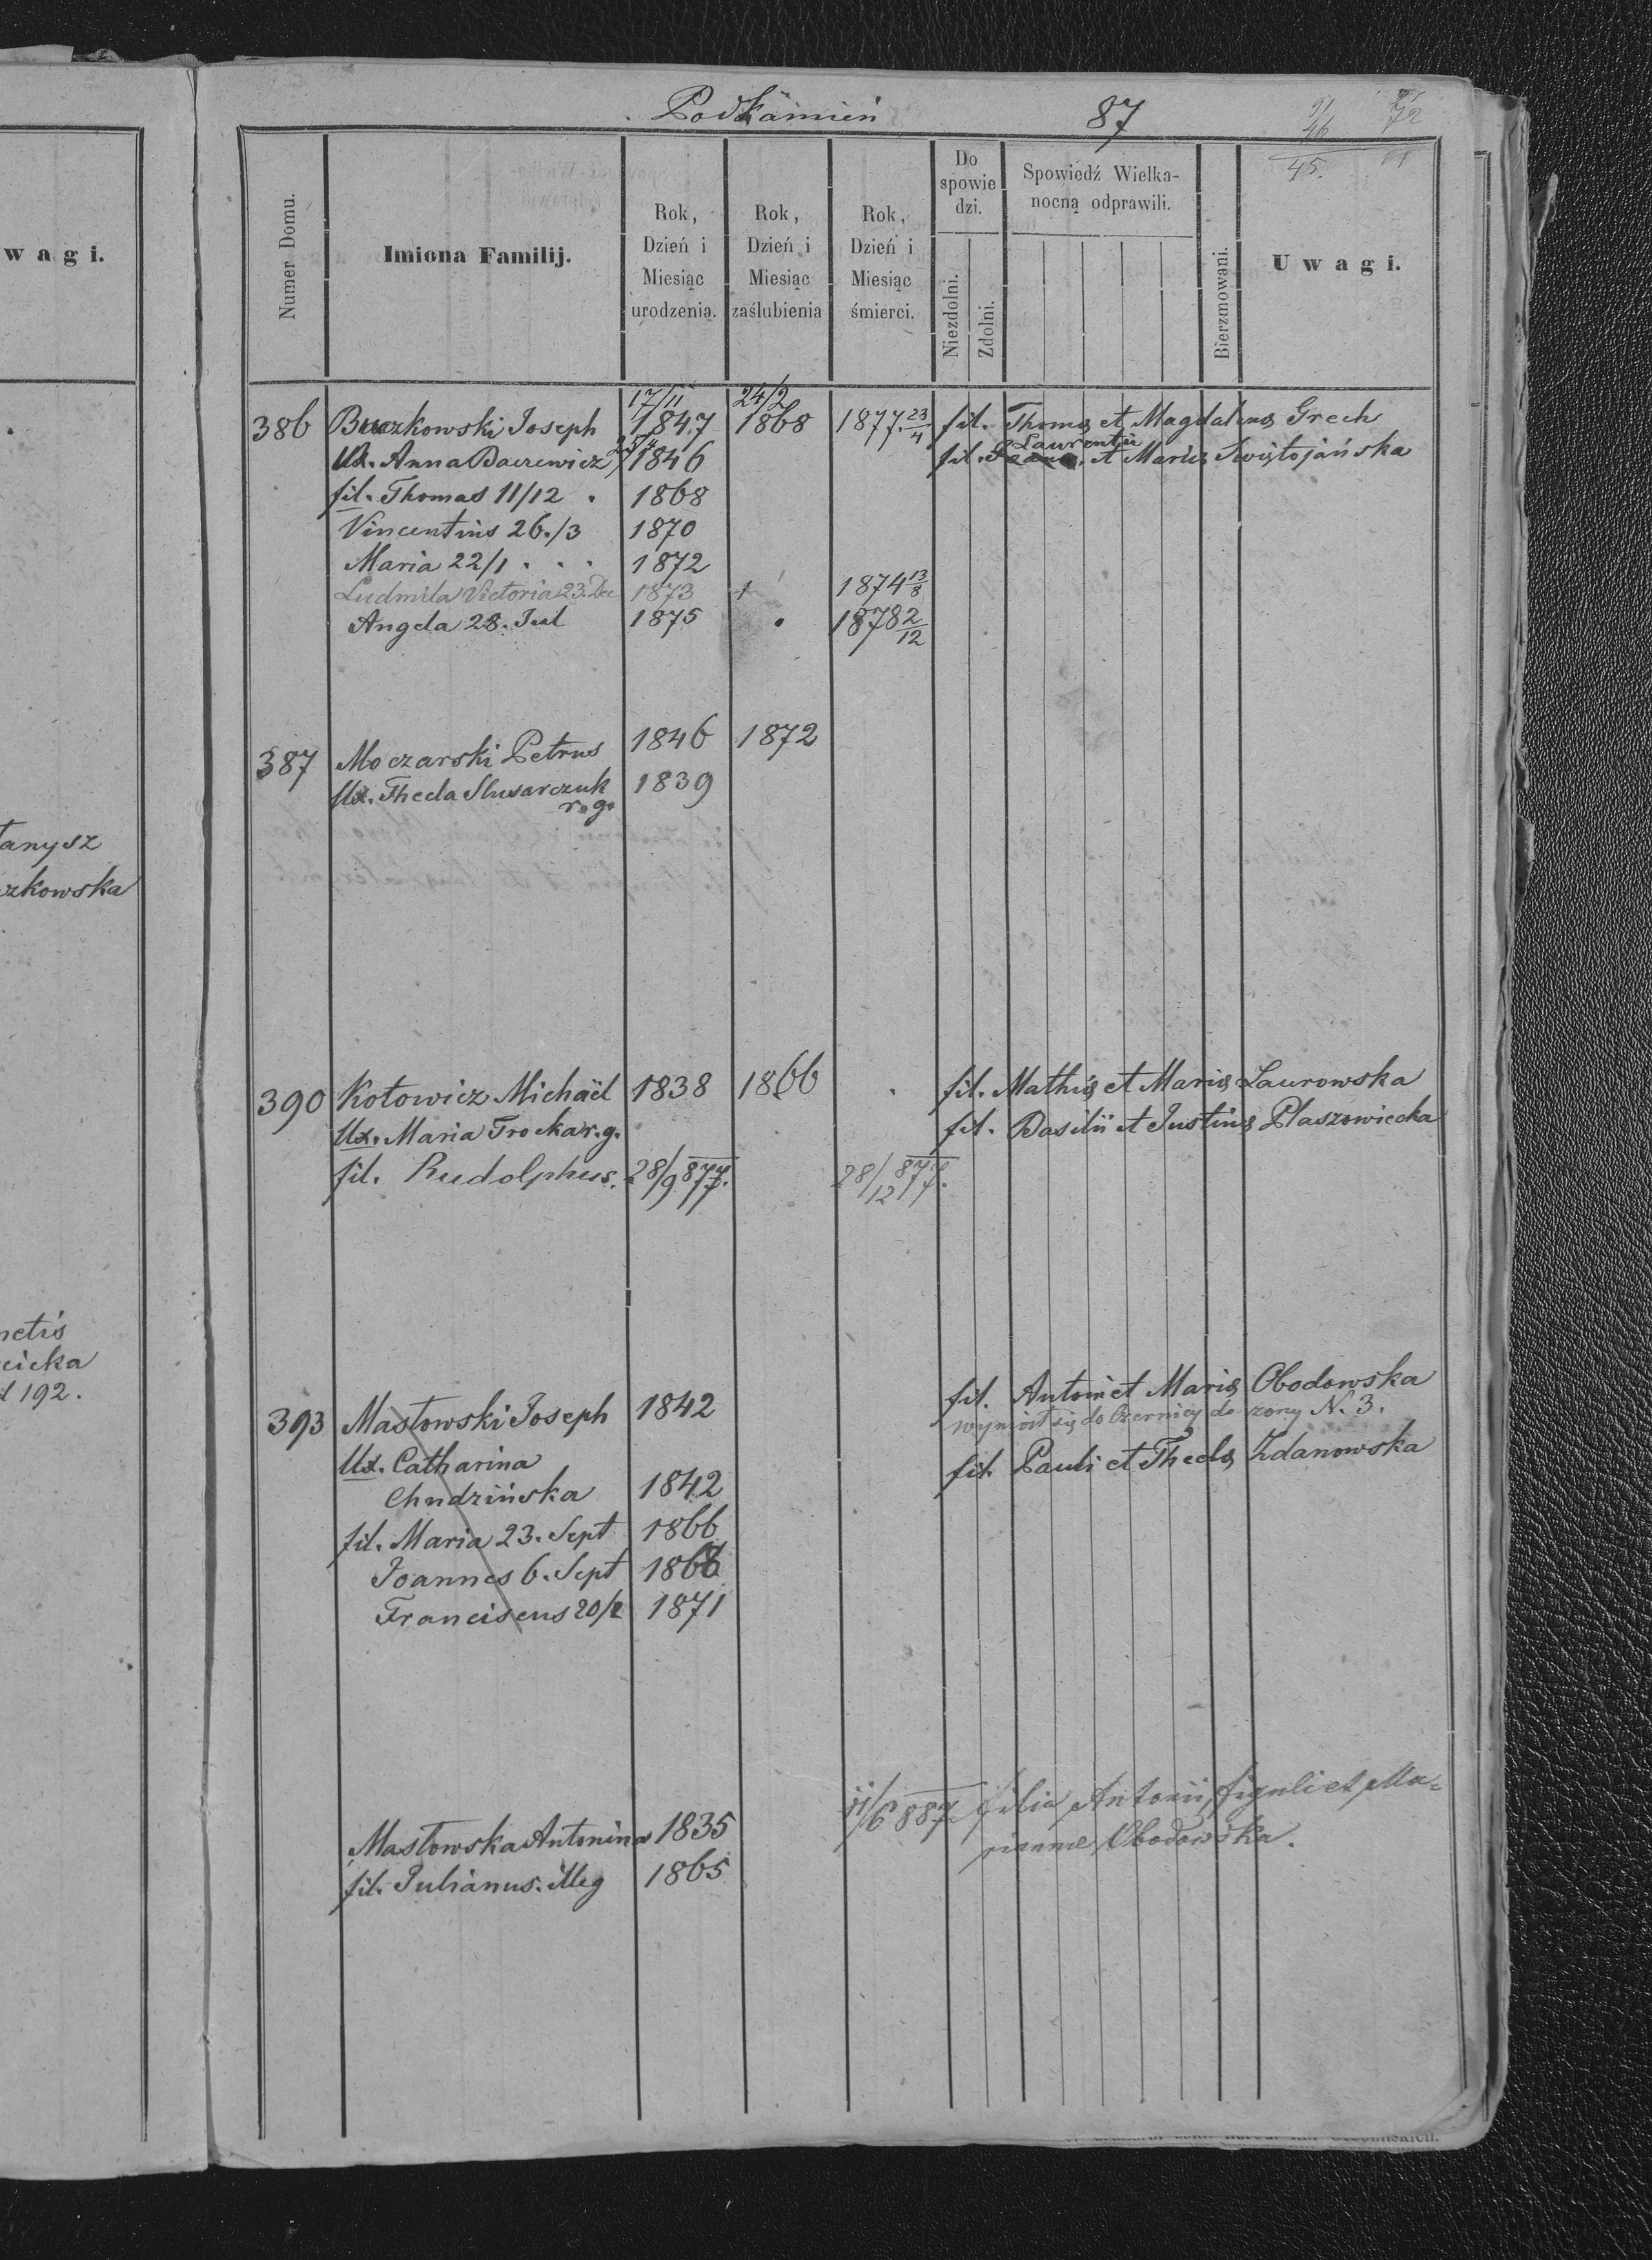 Podkamień 87
91 72
46
45.
w a g i.
Numer Domu.
Imiona Familij.
Rok, Dzień i Miesiąc urodzenia.
Rok, Dzień i Miesiąc zaślubienia
Rok, Dzień i Miesiąc śmierci.
Do spowie dzi.
Niezdolni.
Zdolni.
Spowiedź Wielka-
nocną odprawili.
Bierzmowani.
U w a g i.
17/11 24/2
386 Buczkowski Joseph 1847 1868 1877. 23/4 fil. Thomę et Magdalenę Grech
Ux. Anna Baczewicz 1846 fil. Laurentii et Marię Świętojańska
fil. Thomas 11/12 . 1868
Vincentius 26./3 1870
Maria 22/1 . . . 1872
Ludmila Victoria 23. Dec 1873 + 1874 13/8
Angela 28. Jul 1875 1878 2/12
387 Moczarski Petrus 1846 1872
Ux. Thecla Slusarczuk 1839
r. g.
anysz
zkowska
390 Kotowicz Michaël 1838 1866 fil. Mathię et Marię Laurowska
Ux. Maria Trocka r. g. fil. Basilii et Justinę Płaszowiecka
fil. Rudolphus. 28/9 877. 28/12 877.
netis
cicka
192.
393 Masłowski Joseph 1842 fil. Antoni et Marię Obodowska
wyniósł się do Czernicy do żony N. 3.
Ux. Catharina fil. Pauli et Theclę Zdanowska
Chudzińska 1842
fil. Maria 23. Sept 1866
Joannes 6. Sept 1868
Franciscus 20/2 1871
Masłowska Antonina 1835 11/6 887 filia Antonii, figuli et Ma=
rianne Obodowska.
fil. Julianus. illeg 1865